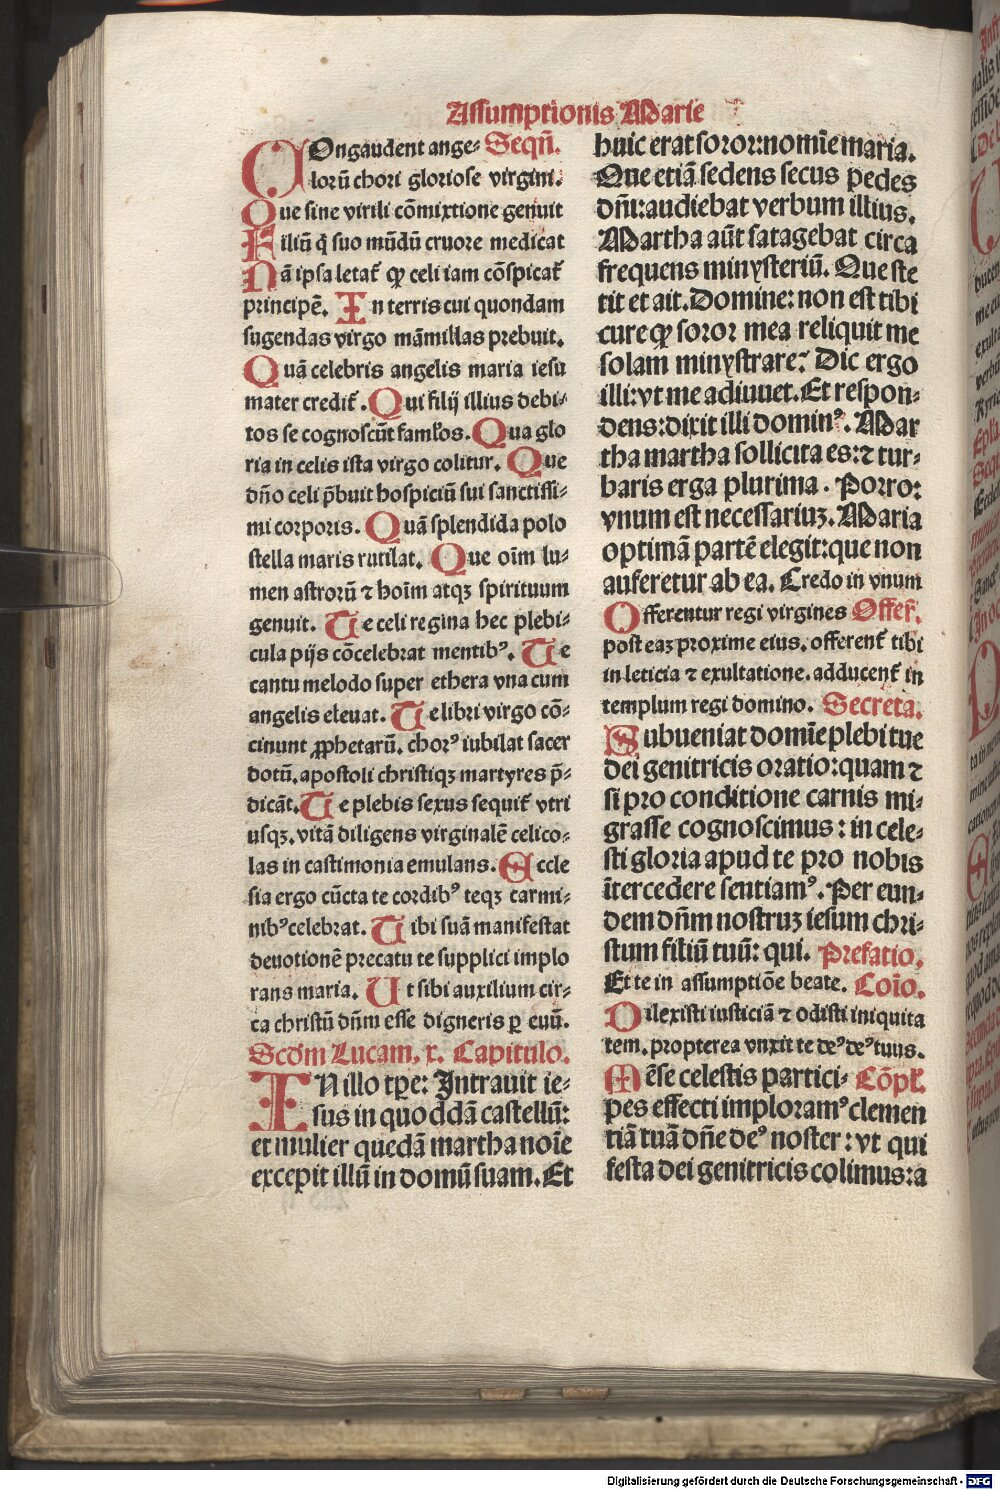 Assumptionis Marie
COngaudent ange⸗ Seqñ.
lorū chori gloriose virgini.
Que sine virili cōmixtione genuit
Filiū q̇ suo mūdū cruore medicat
Nā ipsa letat̄ ꝙ celi iam cōspicat̄
principē. In terris cui quondam
sugendas virgo māmillas prebuit.
Quā celebris angelis maria iesu
mater credit̄. Qui filij illius debi⸗
tos se cognoscūt famĺos. Qua glo
ria in celis ista virgo colitur. Que
dño celi p̄buit hospiciū sui sanctissi⸗
mi corporis. Quā splendida polo
stella maris rutilat. Que oīm lu⸗
men astrorū ⁊ hoīm atqꝫ spirituum
genuit. Te celi regina hec plebi⸗
cula pijs cōcelebrat mentibꝰ. Te
cantu melodo super ethera vna cum
angelis eleuat. Te libri virgo cō⸗
cinunt ꝓphetarū. chorꝰ iubilat sacer
dotū. apostoli christiqꝫ martyres p̄⸗
dicāt. Te plebis sexus sequit̄ vtri
usqꝫ. vitā diligens virginalē celico⸗
las in castimonia emulans. Eccle
sia ergo cūcta te cordibꝰ teqꝫ carmi⸗
nibꝰ celebrat. Tibi suā manifestat
deuotionē precatu te supplici implo
rans maria. Ut sibi auxilium cir⸗
ca christū dñm esse digneris ꝑ euū.
Scd̄m Lucam. x. Capitulo.
IN illo tꝑe: Intrauit ie⸗
sus in quoddā castellū:
et mulier quedā martha noīe
excepit illū in domū suam. Et
huic erat soror: nomīe maria.
Que etiā sedens secus pedes
dñi: audiebat verbum illius.
Martha aūt satagebat circa
frequens minysteriū. Que ste
tit et ait. Domine: non est tibi
cure ꝙ soror mea reliquit me
solam minystrare? Dic ergo
illi: vt me adiuuet. Et respon⸗
dens: dixit illi dominꝰ. Mar
tha martha sollicita es: ⁊ tur⸗
baris erga plurima. Porro:
vnum est necessariuꝫ. Maria
optimā partē elegit: que non
auferetur ab ea. Credo in vnum
Offerentur regi virgines Offer̄.
post eaꝫ proxime eius. offerent̄ tibi
in leticia ⁊ exultatione. adducent̄ in
templum regi domino. Secreta.
Subueniat domīe plebi tue
dei genitricis oratio: quam ⁊
si pro conditione carnis mi⸗
grasse cognoscimus: in cele⸗
sti gloria apud te pro nobis
ītercedere sentiamꝰ. Per eun⸗
dem dñm nostruꝫ iesum chri⸗
stum filiū tuū: qui. Prefatio.
Et te in assumptiōe beate. Coīo.
Dilexisti iusticiā ⁊ odisti iniquita
tem. propterea vnxit te deꝰ deꝰ tuus.
Mēse celestis partici⸗ Cōpĺ.
pes effecti imploramꝰ clemen
tiā tuā dñe deꝰ noster: vt qui
festa dei genitricis colimus: a
Digitalisierung gefördert durch die Deutsche Forschungsgemeinschaft - DFG